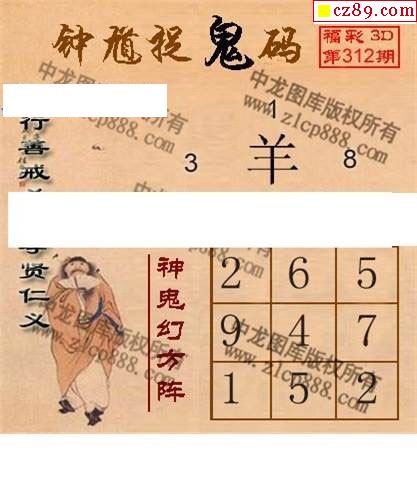 cz89.com
钟馗捉鬼码
福彩 3D
第312期
中龙图库版权所有
www.zlcp888.com
1
3 羊 8
行善戒
贤仁义
神鬼幻方阵
2 6 5
9 4 7
1 5 2
中龙图库版权所有
www.zlcp888.com